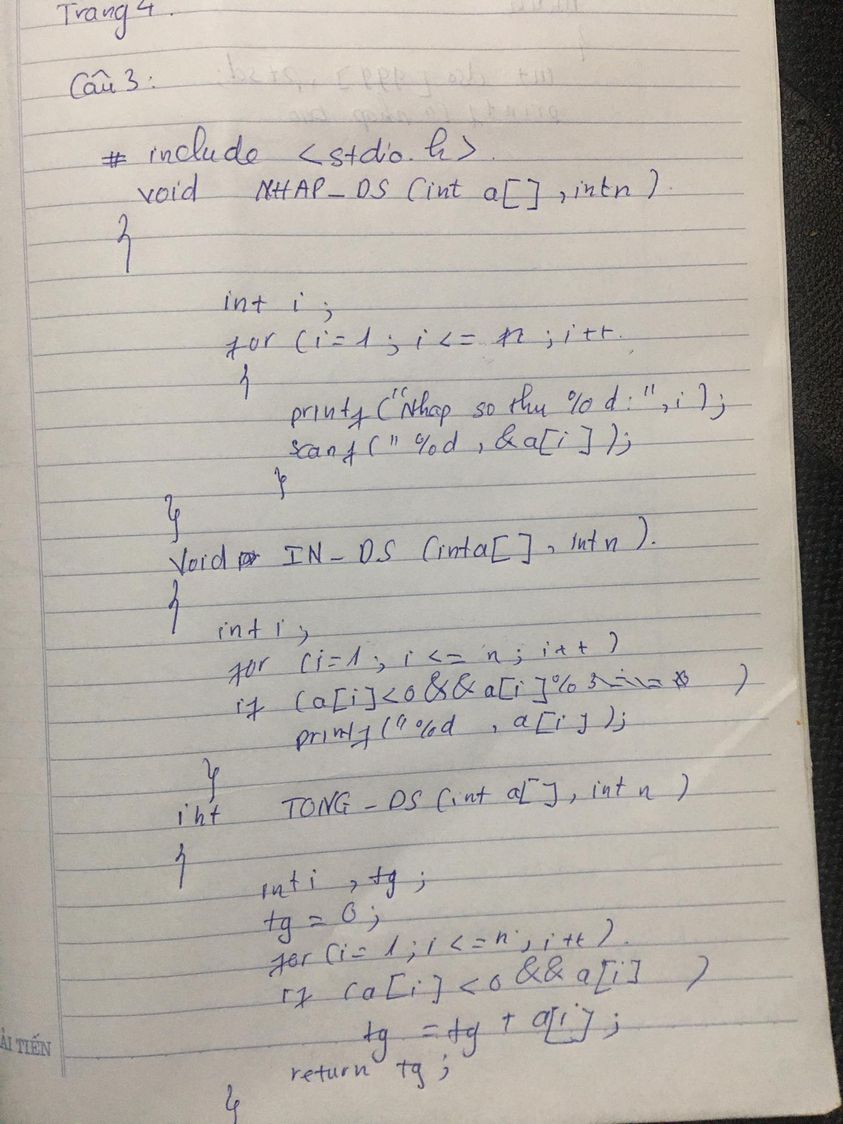 Trang 4.
Câu 3:
# include <stdio.h>.
void NHAP_DS (int a[] , int n).
{
int i ;
for (i=1 ; i <= n ; i++.
{
printf ("Nhap so thu %d:", i );
scanf (" %d , &a[i] );
}
}
void IN_DS (int a[] , int n ).
{
int i ;
for (i=1 ; i <= n ; i++ )
if (a[i]<0 && a[i]% )
printf (" %d , a[i] );
}
int TONG_DS (int a[], int n )
{
int i , tg ;
tg = 0 ;
for (i= 1 ; i <= n ; i++ ).
if (a[i] < 0 && a[i] )
tg = tg + a[i] ;
return tg ;
}
ẢI TIẾN